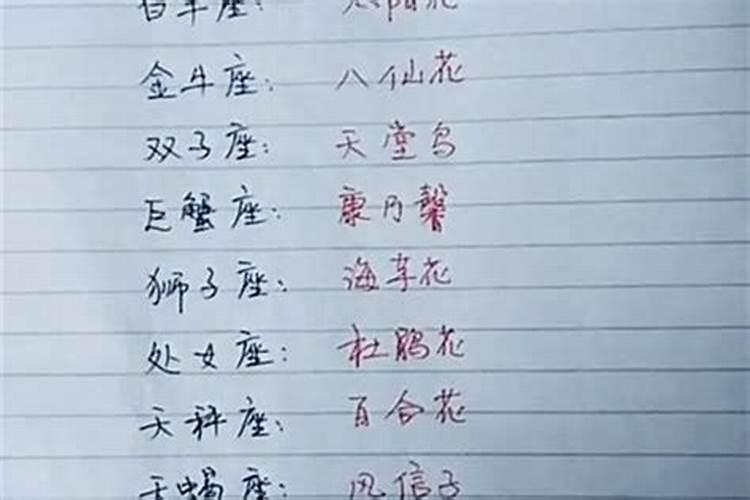 白羊座: 太阳花
金牛座: 八仙花
双子座: 天堂鸟
巨蟹座: 康乃馨
狮子座: 海草花
处女座: 杜鹃花
天秤座: 百合花
天蝎座: 风信子